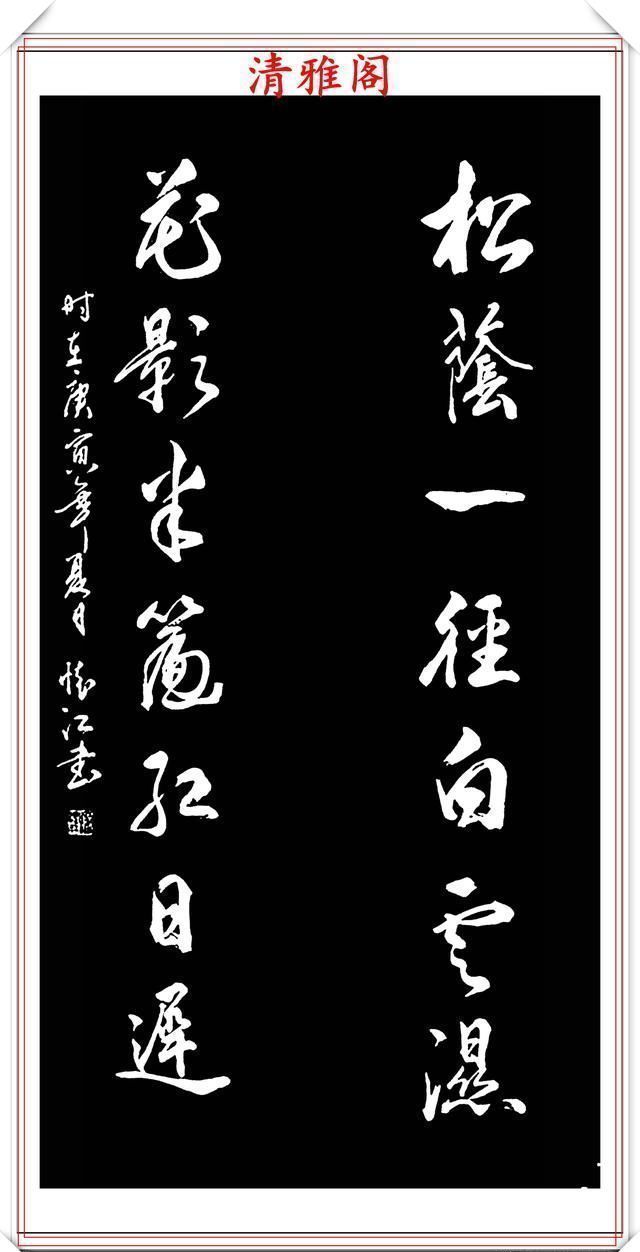 清雅阁
松蔭一徑白雲濕
花影半簾紅日遲
时在庚寅年夏日 懷江书